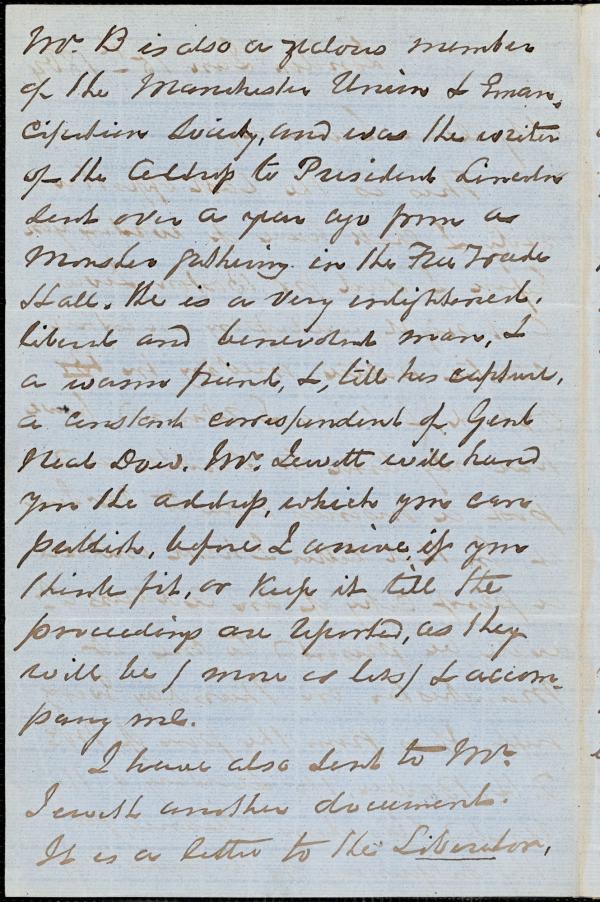 Mr. B is also a zealous member
of the Manchester Union & Eman-
cipation Society, and was the writer
of the Address to President Lincoln
sent over a year ago from a
Monster gathering in the Free Trade
Hall. He is a very enlightened,
liberal and benevolent man, &
a warm friend, &, till his capture,
a constant correspondent of Genl
Neal Dow. Mr. Jewett will hand
you the address, which you can
publish, before I arrive, if you
think fit, or keep it till the
proceedings are reported, as they
will be (more or less) & accom-
pany me.
I have also sent to Mr.
Jewett another document.
It is a letter to the Liberator,